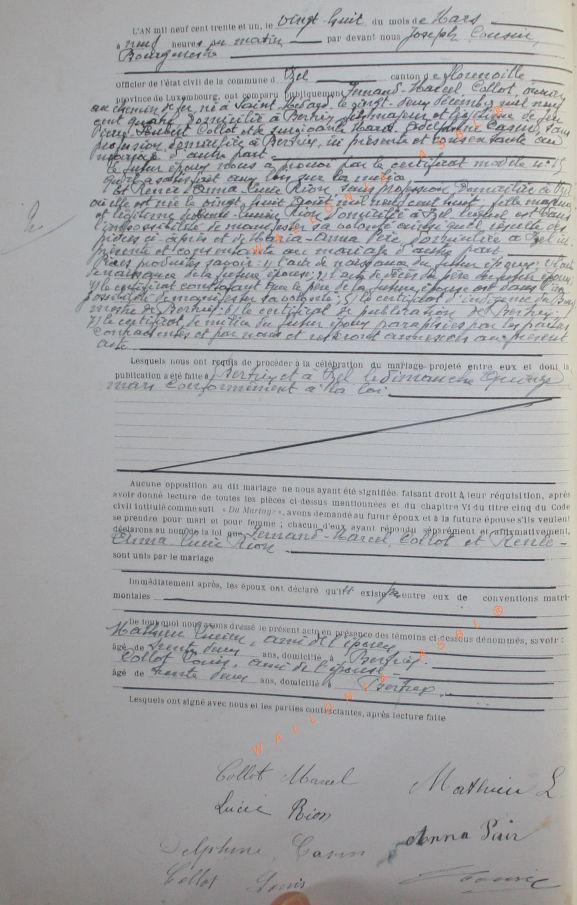 L'AN mil neuf cent trente et un, le vingt huit du mois de Mars
à neuf heures du matin par devant nous Joseph
Bourgmestre
officier de l'état civil de la commune d' canton de
province de Luxembourg, ont comparu publiquement Fernand-Marcel Collot, ouvrier
au chemin de fer né à Saint le vingt-deux décembre mil neuf
cent quatre domicilié à Bertrix, fils majeur et légitime de
Collot et de survivante Delphine sans
profession domiciliée à Bertrix, ici présente et consentante au
mariage d'autre part
le futur époux nous a prouvé par le certificat modèle n° 15
qu'il a satisfait aux lois sur la milice
et Renée-Anna-Lucie Rion, sans profession domiciliée à
où elle est née le vingt août mil neuf cent neuf, fille majeure
et légitime de Rion domicilié à lequel est dans
l'impossibilité de manifester sa volonté ainsi qu'il résulte des
pièces ci-après et de Maria-Anna domiciliée à ici
présente et consentante au mariage d'autre part
Pièces produites savoir: 1) l'acte de naissance du futur époux; 2)
de naissance de la future épouse; 3) acte de décès du père du futur époux;
4) le certificat constatant que le père de la future épouse est dans l'im-
possibilité de manifester sa volonté; 5) le certificat d'indigence du Bourg-
mestre de Bertrix; 6) le certificat de publication de Bertrix;
7) le certificat de milice du futur époux paraphées par les parties
contractantes et par nous et resteront annexées au présent
acte
Lesquels nous ont requis de procéder à la célébration du mariage projeté entre eux et dont la
publication a été faite à Bertrix et à le dimanche quinze
mars conformément à la loi.
Aucune opposition au dit mariage ne nous ayant été signifiée, faisant droit à leur réquisition, après
avoir donné lecture de toutes les pièces ci-dessus mentionnées et du chapitre VI du titre cinq du Code
civil intitulé comme suit « Du Mariage », avons demandé au futur époux et à la future épouse s'ils veulent
se prendre pour mari et pour femme ; chacun d'eux ayant répondu séparément et affirmativement,
déclarons au nom de la loi que Fernand-Marcel Collot et Renée-
Anna Lucie Rion
sont unis par le mariage
Immédiatement après, les époux ont déclaré qu'il existe entre eux de conventions matri-
moniales
De tout quoi nous avons dressé le présent acte en présence des témoins ci-dessous dénommés, savoir :
Mathieu Lucien, ami de l'époux
âgé de trente deux ans, domicilié à Bertrix
Collot Louis, ami de l'épouse
âgé de trente deux ans, domicilié à Bertrix
Lesquels ont signé avec nous et les parties contractantes, après lecture faite
Collot Marcel
Mathieu L
Lucie Rion
Delphine
Anna
Collot Louis
WALLONIA ASBL ©
WALLONIA ASBL ©